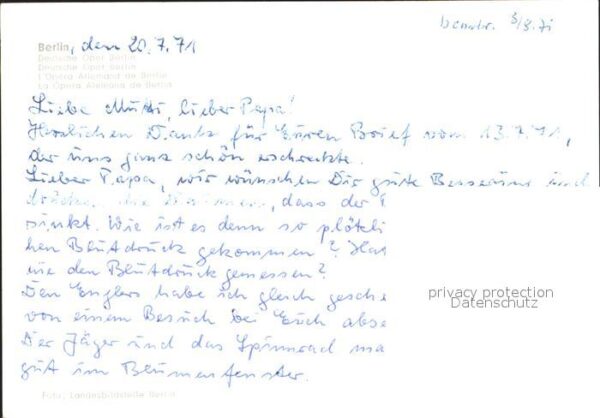 beantw. 3/8.71
Berlin, den 20.7.71
Deutsche Oper Berlin
Deutsche Oper Berlin
L'Opera Allemand de Berlin
La Opera Alemana de Berlin
Liebe Mutti, lieber Papa!
Herzlichen Dank für Euren Brief vom 13.7.71,
der uns ganz schön erschreckte.
Lieber Papa, wir wünschen Dir gute Besserung und
drücken die Daumen, dass der
sinkt. Wie ist es denn so plötzli
hen Blutdruck gekommen? Hat
nie den Blutdruck gemessen?
Den Englers habe ich gleich geschr
von einem Besuch bei Euch abse
Der Jäger und das Spinnrad ma
gut im Blumenfenster.
privacy protection
Datenschutz
Foto: Landesbildstelle Berlin